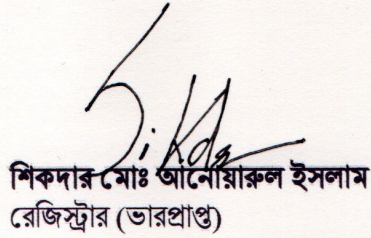 শিকদার মোঃ আনোয়ারুল ইসলাম
রেজিস্ট্রার (ভারপ্রাপ্ত)